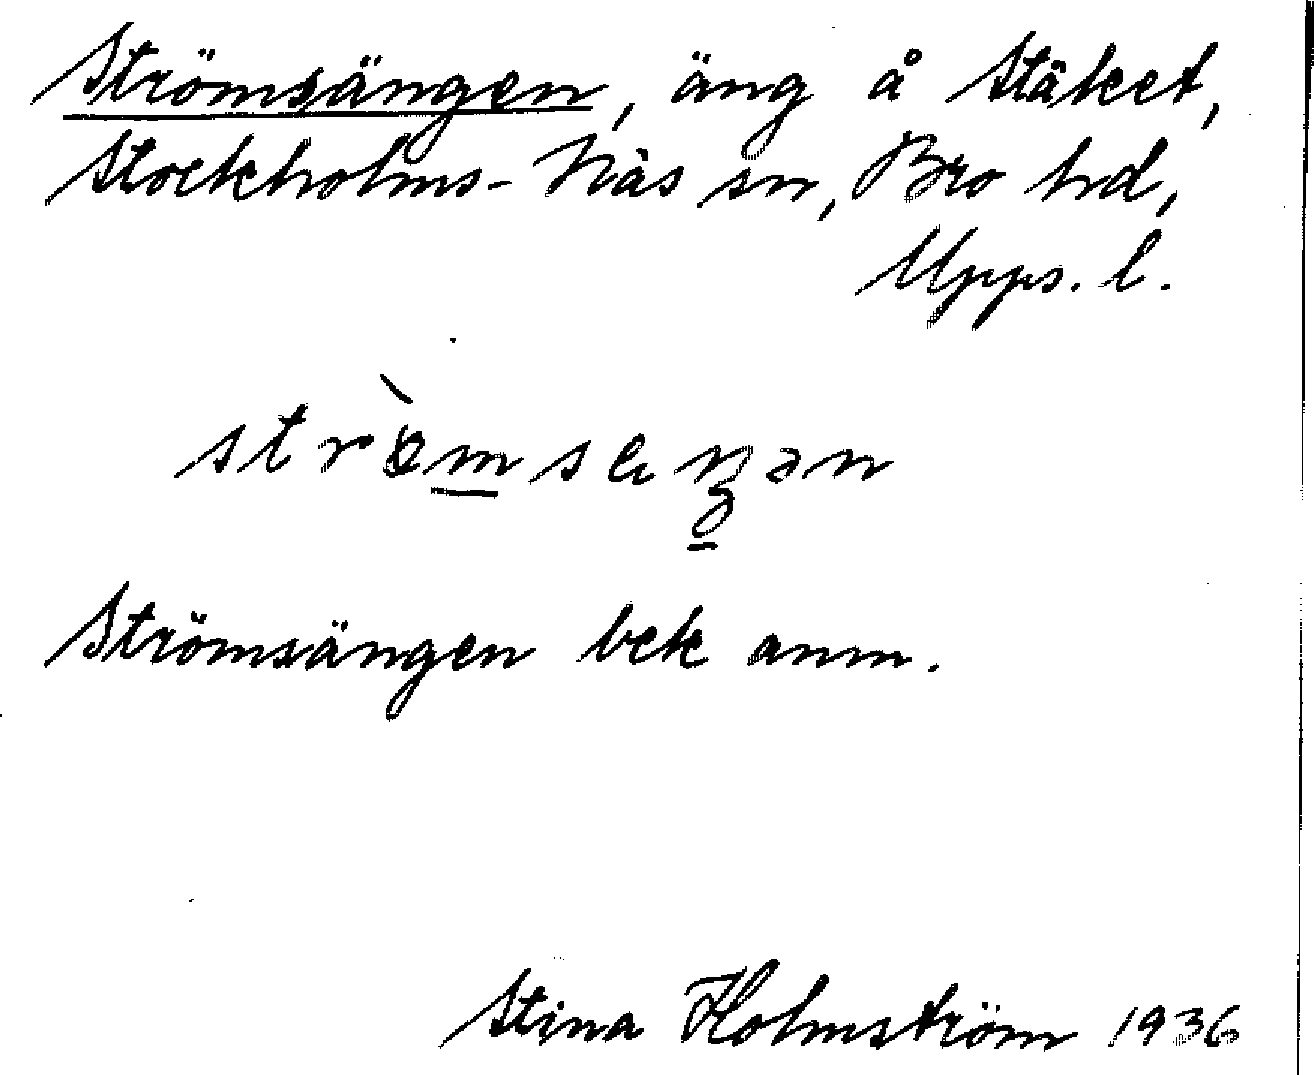 Strömsängen, äng å Stäket,
Stockholms-Näs sn, Bro hd,
Upps. l.
Strömsängen bek anm.
Stina Holmström 1936